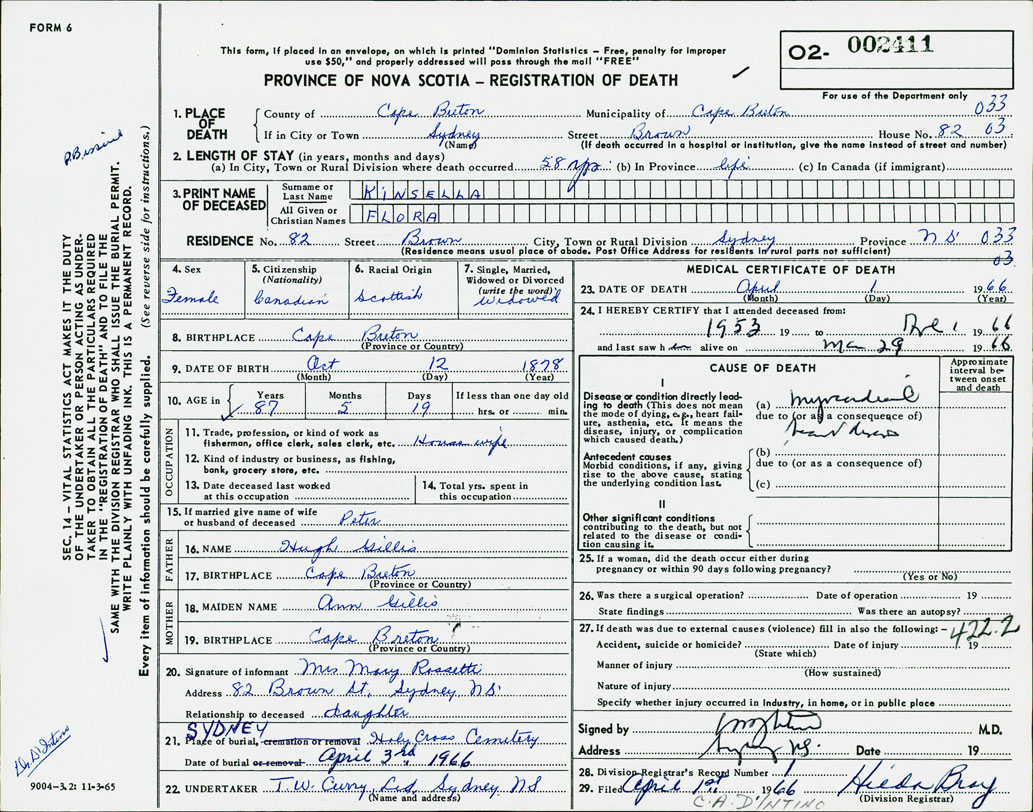 FORM 6
This form, if placed in an envelope, on which is printed "Dominion Statistics – Free, penalty for improper
use $50," and properly addressed will pass through the mail "FREE"
PROVINCE OF NOVA SCOTIA – REGISTRATION OF DEATH
O2- 002411
For use of the Department only
1. PLACE OF DEATH
County of Cape Breton Municipality of Cape Breton 033
If in City or Town Sydney Street Brown House No. 82 03
(Name) (If death occurred in a hospital or institution, give the name instead of street and number)
2. LENGTH OF STAY (in years, months and days)
(a) In City, Town or Rural Division where death occurred 58 yrs (b) In Province life (c) In Canada (if immigrant)
3. PRINT NAME OF DECEASED
Surname or Last Name KINSELLA
All Given or Christian Names FLORA
RESIDENCE No. 82 Street Brown City, Town or Rural Division Sydney Province NS 033
(Residence means usual place of abode. Post Office Address for residents in rural parts not sufficient)
03
4. Sex
Female
5. Citizenship
(Nationality)
Canadian
6. Racial Origin
Scottish
7. Single, Married,
Widowed or Divorced
(write the word)
Widowed
8. BIRTHPLACE Cape Breton
(Province or Country)
9. DATE OF BIRTH Oct 12 1878
(Month) (Day) (Year)
10. AGE in Years Months Days If less than one day old
87 5 19 hrs. or min.
OCCUPATION
11. Trade, profession, or kind of work as
fisherman, office clerk, sales clerk, etc. Housewife
12. Kind of industry or business, as fishing,
bank, grocery store, etc.
13. Date deceased last worked
at this occupation
14. Total yrs. spent in
this occupation
15. If married give name of wife
or husband of deceased Peter
FATHER
16. NAME Hugh Gillis
17. BIRTHPLACE Cape Breton
(Province or Country)
MOTHER
18. MAIDEN NAME Ann Gillis
19. BIRTHPLACE Cape Breton
(Province or Country)
20. Signature of informant Mrs Mary Rossetti
Address 82 Brown St, Sydney NS
Relationship to deceased daughter
SYDNEY
21. Place of burial, cremation or removal Holy Cross Cemetery
Date of burial or removal April 3rd 1966
22. UNDERTAKER T.W. Curry Ltd Sydney NS
(Name and address)
MEDICAL CERTIFICATE OF DEATH
23. DATE OF DEATH April 1 1966
(Month) (Day) (Year)
24. I HEREBY CERTIFY that I attended deceased from:
1953 19 to 1 1966
and last saw h alive on 29 1966
CAUSE OF DEATH
Approximate
interval be-
tween onset
and death
I
Disease or condition directly lead-
ing to death (This does not mean
the mode of dying, e.g., heart fail-
ure, asthenia, etc. It means the
disease, injury, or complication
which caused death.)
(a) myocardial
due to (or as a consequence of)
Antecedent causes
Morbid conditions, if any, giving
rise to the above cause, stating
the underlying condition last.
(b)
due to (or as a consequence of)
(c)
II
Other significant conditions
contributing to the death, but not
related to the disease or condi-
tion causing it.
25. If a woman, did the death occur either during
pregnancy or within 90 days following pregnancy?
(Yes or No)
26. Was there a surgical operation? Date of operation 19
State findings Was there an autopsy?
27. If death was due to external causes (violence) fill in also the following:– 422.2
Accident, suicide or homicide? Date of injury 19
(State which)
Manner of injury
(How sustained)
Nature of injury
Specify whether injury occurred in Industry, in home, or in public place
Signed by M.D.
Address Sydney NS. Date 19
28. Division Registrar's Record Number 1
29. Filed April 1st 1966 Hilda Bray
(Division Registrar)
C.A. D'INTINO
SEC. 14 – VITAL STATISTICS ACT MAKES IT THE DUTY
OF THE UNDERTAKER OR PERSON ACTING AS UNDER-
TAKER TO OBTAIN ALL THE PARTICULARS REQUIRED
IN THE "REGISTRATION OF DEATH" AND TO FILE THE
SAME WITH THE DIVISION REGISTRAR WHO SHALL ISSUE THE BURIAL PERMIT.
WRITE PLAINLY WITH UNFADING INK. THIS IS A PERMANENT RECORD.
Every item of information should be carefully supplied. (See reverse side for instructions.)
9004-3.2: 11-3-65